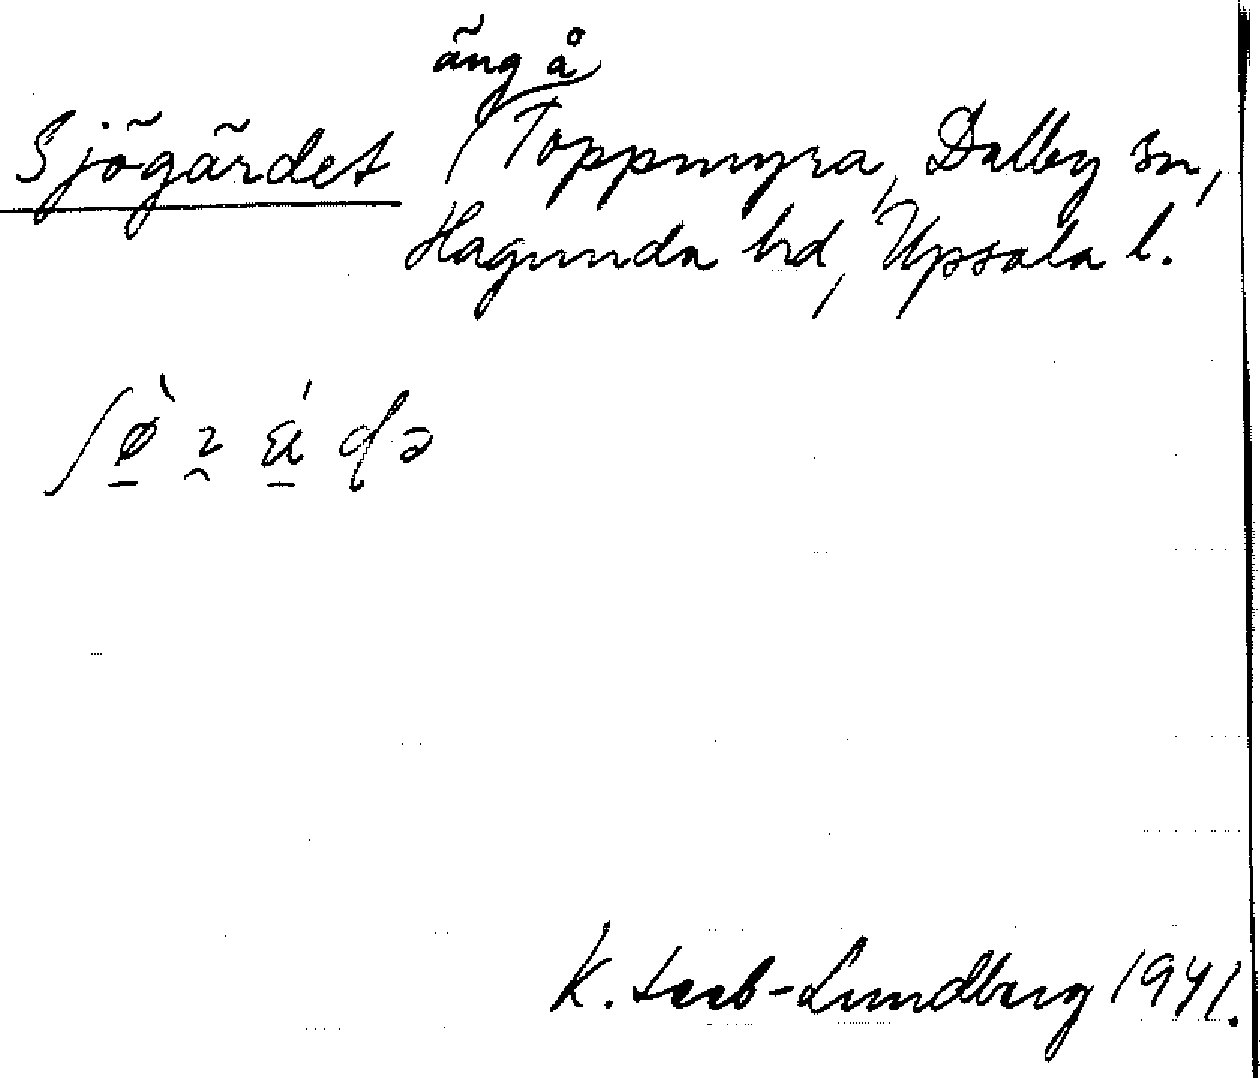 äng å
Sjögärdet / Toppmyra, Dalby sn,
Hagunda hd, Upsala l.
K. Leeb-Lundberg 1941.